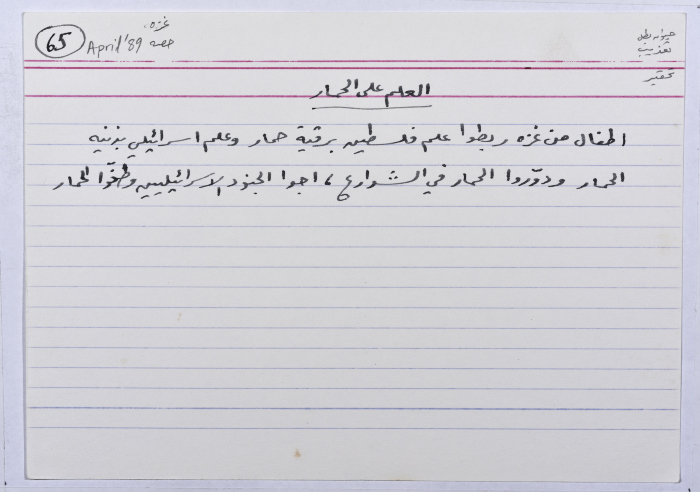 65
غزه،
April '89 حصه
حيوان بطل
تعذيب
تحقير
العلم على الحمار
اطفال من غزه ربطوا علم فلسطين برقبة حمار وعلم اسرائيلي بذنبه
الحمار ودوّروا الحمار في الشوارع، اجوا الجنود الاسرائيليين وطخّوا الحمار